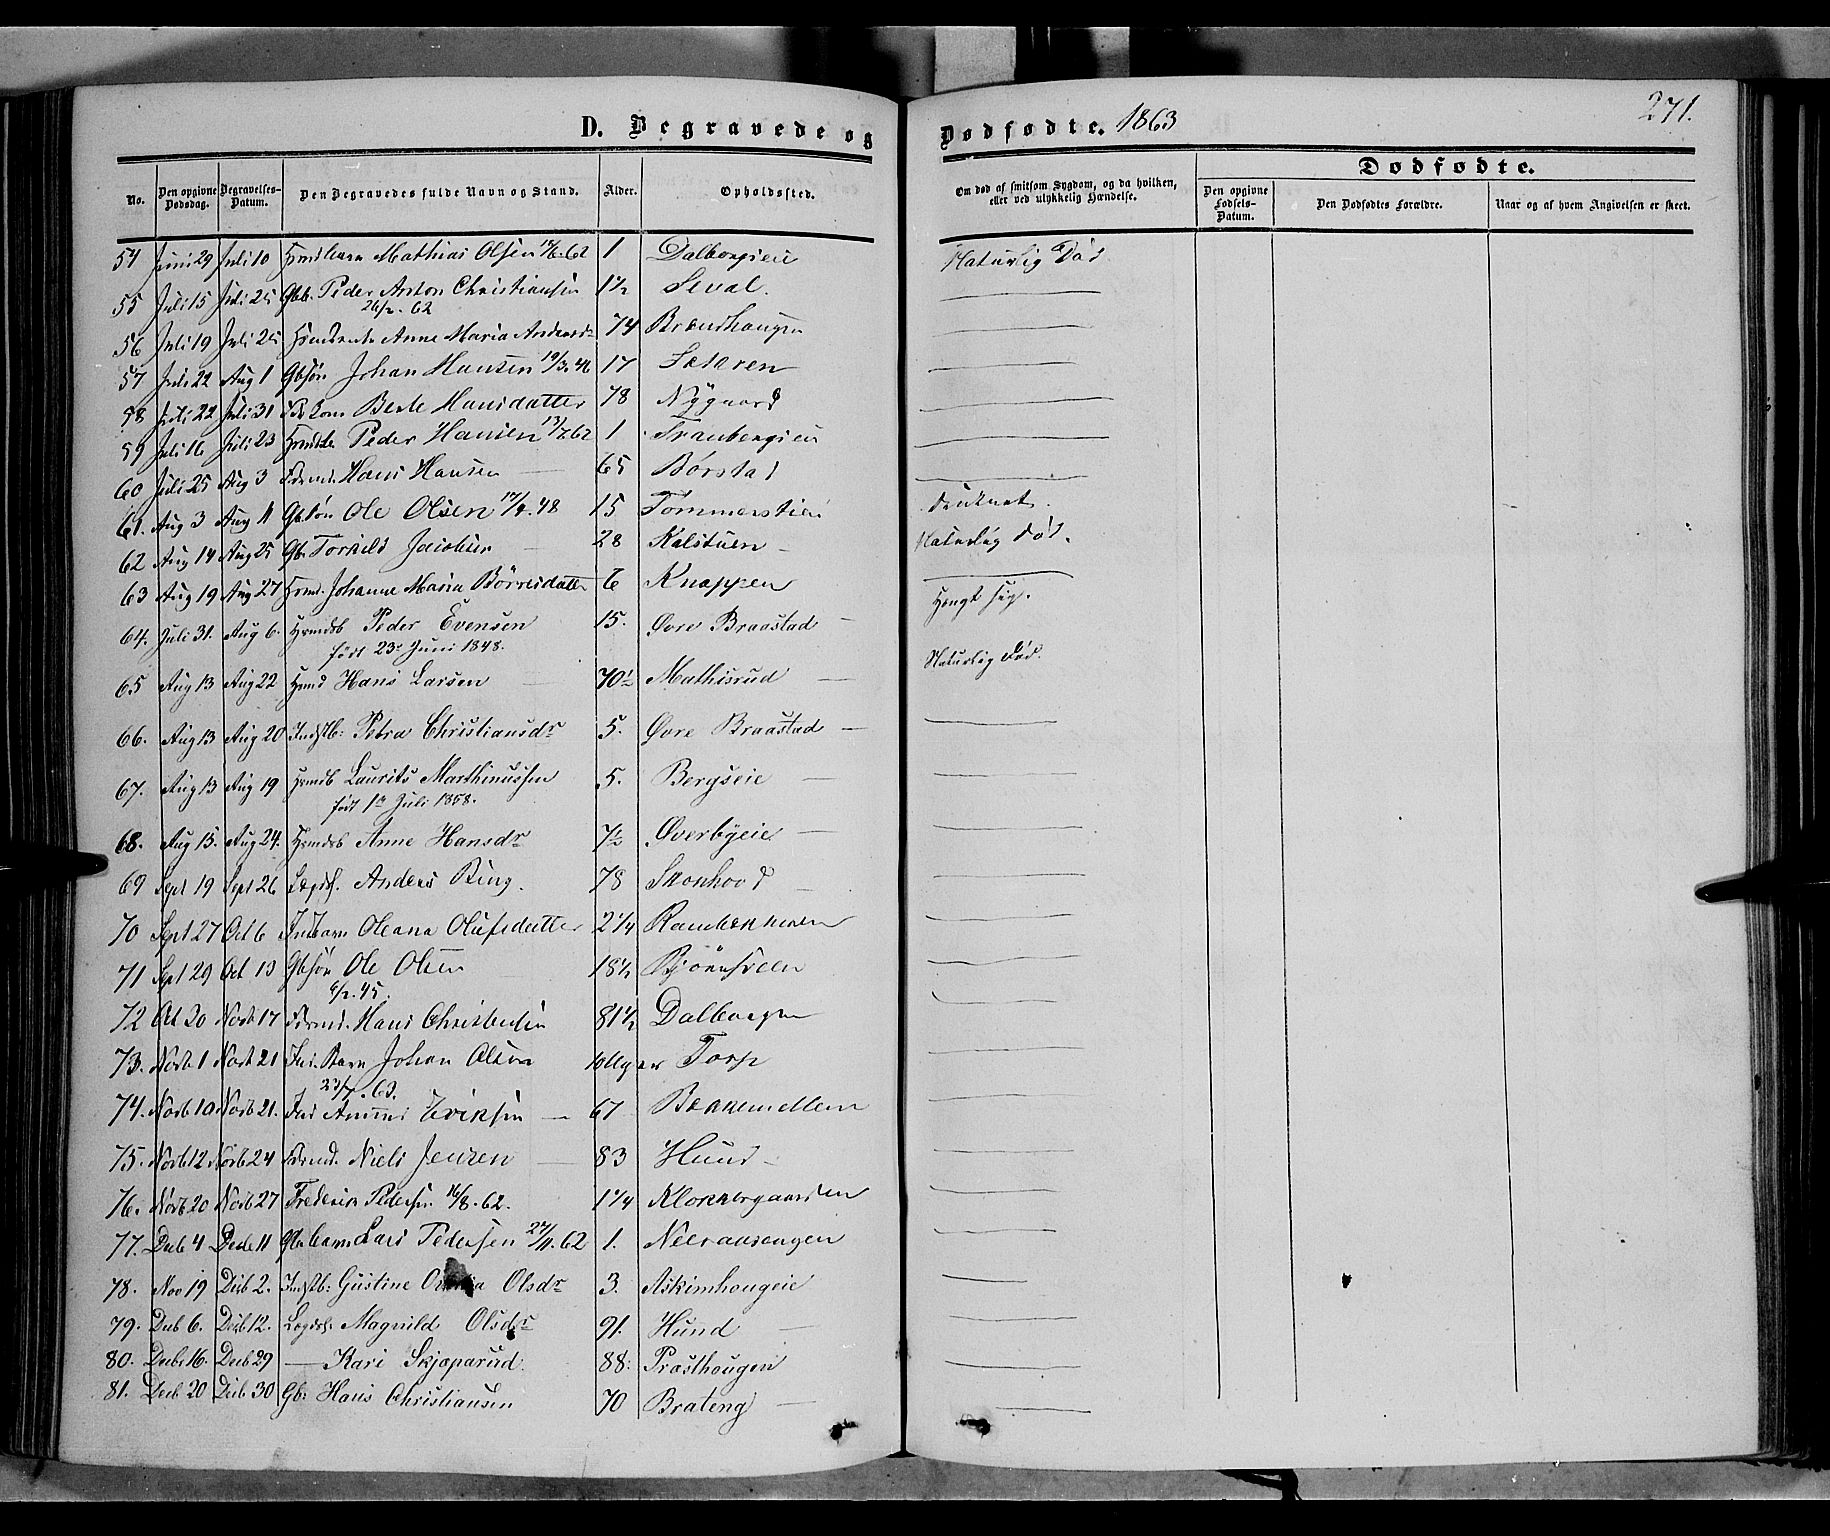 D. Begravede og Dødfødte. 1863
271.
No. Den opgivne Dødsdag. Begravelses-Datum. Den Begravedes fulde Navn og Stand. Alder. Opholdssted. Om død af smitsom Sygdom, og da hvilken, eller ved ulykkelig Hændelse.
Dødfødte.
Den opgivne Fødsels-Datum. Den Dødfødtes Forældre. Naar og af hvem Angivelsen er skeet.
54 Juni 29 Juli 10 Mathias Olsen 17/6.62 1 Dalborgseie Naturlig Død
55 Juli 15 Juli 25 Gbb. Peder Anton Christiansen 1½ Seval.
26/2.62
56 Juli 19 Juli 25 Anne Maria 74 Brændhaugen
57 Juli 22 Aug 1 Gbsøn Johan Hansen 19/3.46 17 Sætaren
58 Juli 22 Juli 31 Berte Hansdatter 78 Nygaard
59 Juli 16 Juli 23 Peder Hansen 13/7.62 1 Tranbergseie
60 Juli 25 Aug 3 Hans Hansen — 65 Børstad
61. Aug 3 Aug 11 Gbsøn Ole Olsen 48 15 Druknet.
62 Aug 14 Aug 25 Gb. Torkild Jacobsen 28 Kalstuen — Naturlig Død.
63 Aug 19 Aug 27 Johanne Maria Børresdatter 6 Knappen
64. Juli 31. Aug 6. Hsmdsb Peder Evensen 15. Øvre Braastad — Hengt sig.
født 23de Juni 1848.
65 Aug 13 Aug 22 Hsmd Hans Larsen — 70½ Mathisrud — Naturlig Død.
66. Aug 13 Aug 20 Indstb: Petra Christiansdr 5. Øvre Braastad —
67. Aug 13 Aug 19 Hsmdsb Laurits Marthinussen 5. Bergseie —
født 1ste Juli 1858.
68. Aug 15. Aug 24. Hsmdsb Anne Hansdr 7½ Øverbyeie —
69 Sept 19 Sept 26 Lægdsl. Anders Ring. 78 Skonhovd —
70 Sept 27 Oct 6 Oleana Olufsdatter 2¼ Rambekmoen
71 Sept 29 Oct 13 Gbsøn Ole Olsen 18½ Bjørnsveen
6/2.45.
72 Oct 30 Novb 17 Hans Christensen 81½ Dalborgen
73. Novb 1 Novb 21 Ind. Barn Johan Olsen 10 Uger Torp
23/7.63.
74. Novb 10 Novb 21. Ind Eriksen — 67 Bekkemellem
75. Novb 12 Novb 24 Niels Jensen — 83 Hund —
76. Novb 20 Novb 27 Frederik Pedersen 16/8.62. 1¼ Klokkergaarden
77. Decb 4 Decb 11 Gbbarn Lars Pedersen 27/11.62 1.
78. Nov 19 Decb 2. Indstb: Gustine Olsdr 3. Askimhougeie
79. Decb 6. Decb 12. Lægdsl. Magnild Olsdr 91. Hund —
80. Decb 16. Decb 29 — Kari Skjaparud. 88. Præsthougen
81. Decb 20 Decb 30 Gb: Hans Christiansen 70 Brateng —